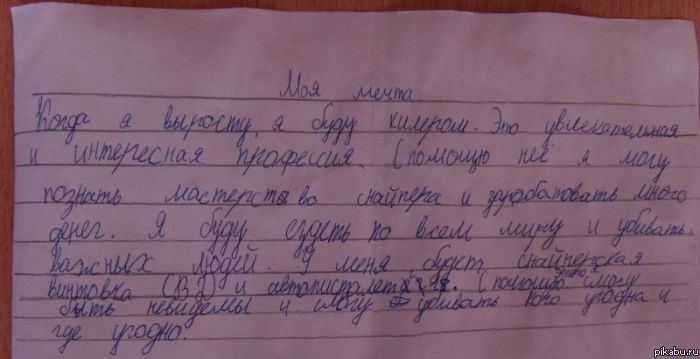 Моя мечта
Когда я вырасту, я буду килером. Это увлекательная
и интересная профессия. С помощю неё я могу
познать мастерство снайпера и зарабатовать много
денег. Я буду ездеть по всем миру и убивать
важных людей. У меня будет снайперская
винтовка и автописталет С помощю этого я смогу
быть невидемы и смогу убивать кого угодна и
где угодно.
pikabu.ru